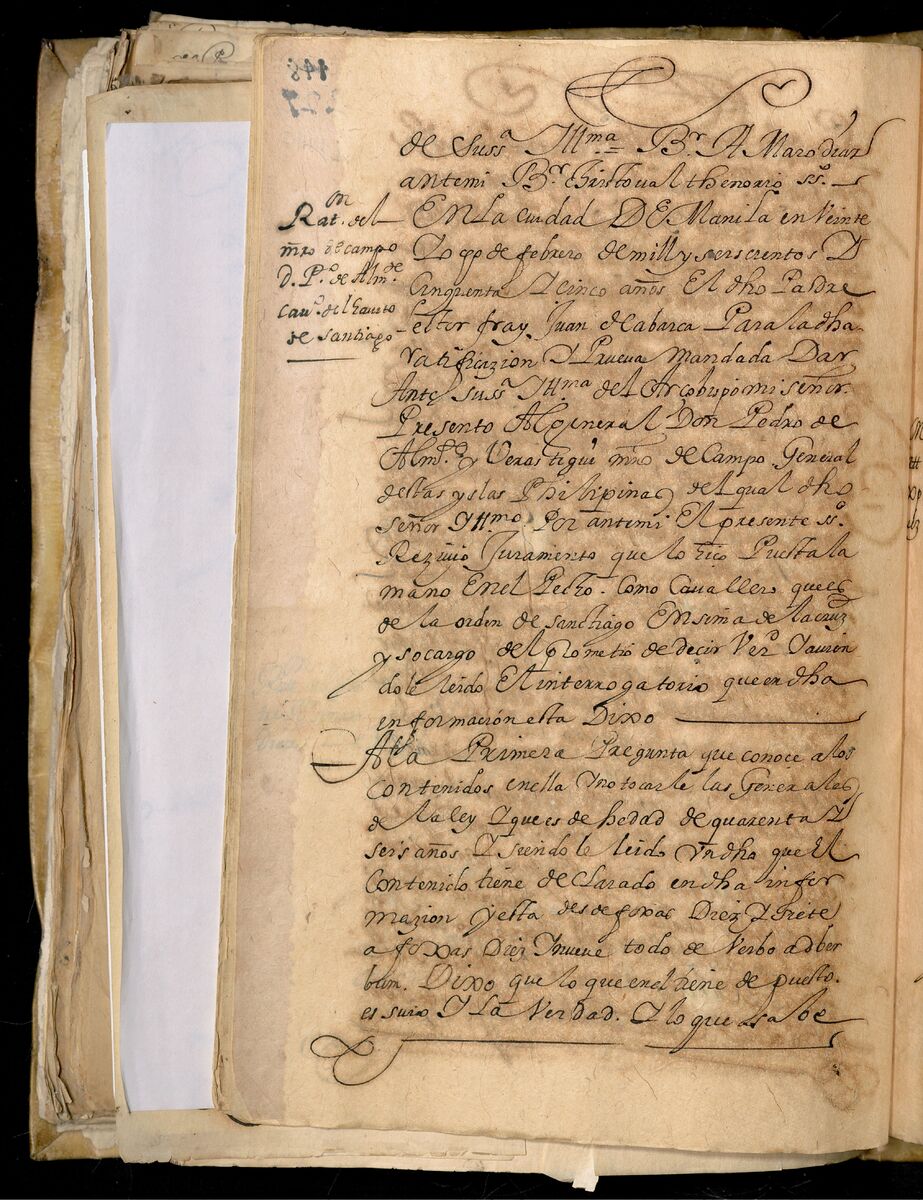 de Suss.ª Yllma = Br. A Maro diaz
antemi Br. Christoual thenorio ss.º
Rat.on del
mro de campo
D. P.º de Alm.de
cau.º del hauito
de Santiago
EN La ciudad DE Manila en Veinte
Y ocho de febrero de mill y seiscientos Y
Cinquenta Y cinco años El dho Padre
letor fray Juan de abarca Para la dha
ratificazion Y Prueua mandada Dar
Ante suss.ª Yllma del Arçobispo mi señor.
Presento Al general Don Pedro de
Alm.de y Verastigui mro de Campo General
destas yslas Philipinas del qual dho
señor Yllmo Por antemi El presente ss.º
Reziuio Juramento que lo hiço Puesta la
mano En el Pecho. Como Cauallero que es
de la orden de sanctiago En sima de la cruz
y so cargo del prometio de decir Ver.d Y auien
dole leido El interrogatorio que en dha
informacion esta Dixo
A la Primera Pregunta que conoce a los
Contenidos en ella Y no tocarle las Generales
de la ley Y que es de hedad de quarenta Y
seis años Y siendole leido Vn dho que El
Contenido tiene declarado en dha infor
mazion y esta desde foxas Diez Y siete
a foxas Diez Y nueue todo de Verbo ad ber
bum. Dixo que lo que en el tiene depuesto.
es suio Y La Verdad. Y lo que a sabe